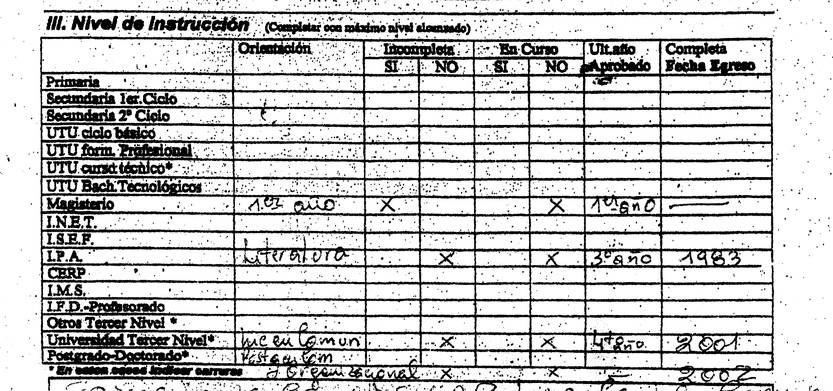 III. Nivel de Instrucción (Completar con máximo nivel alcanzado)
Orientación Incompleta En Curso Ult.año Completa
SI NO SI NO Aprobado Fecha Egreso
Primaria
Secundaria 1er.Ciclo
Secundaria 2º Ciclo
UTU ciclo básico
UTU form. Profesional
UTU curso técnico*
UTU Bach.Tecnológicos
Magisterio 1er año X X 1er año —
I.N.E.T.
I.S.E.F.
I.P.A. Literatura X X 3º año 1983
CERP
I.M.S.
I.F.D.-Profesorado
Otros Tercer Nivel *
Universidad Tercer Nivel* Lic en Comun X X 4º año 2001
Postgrado-Doctorado*
* En estos casos indicar carreras y Organizacional X X — 2002